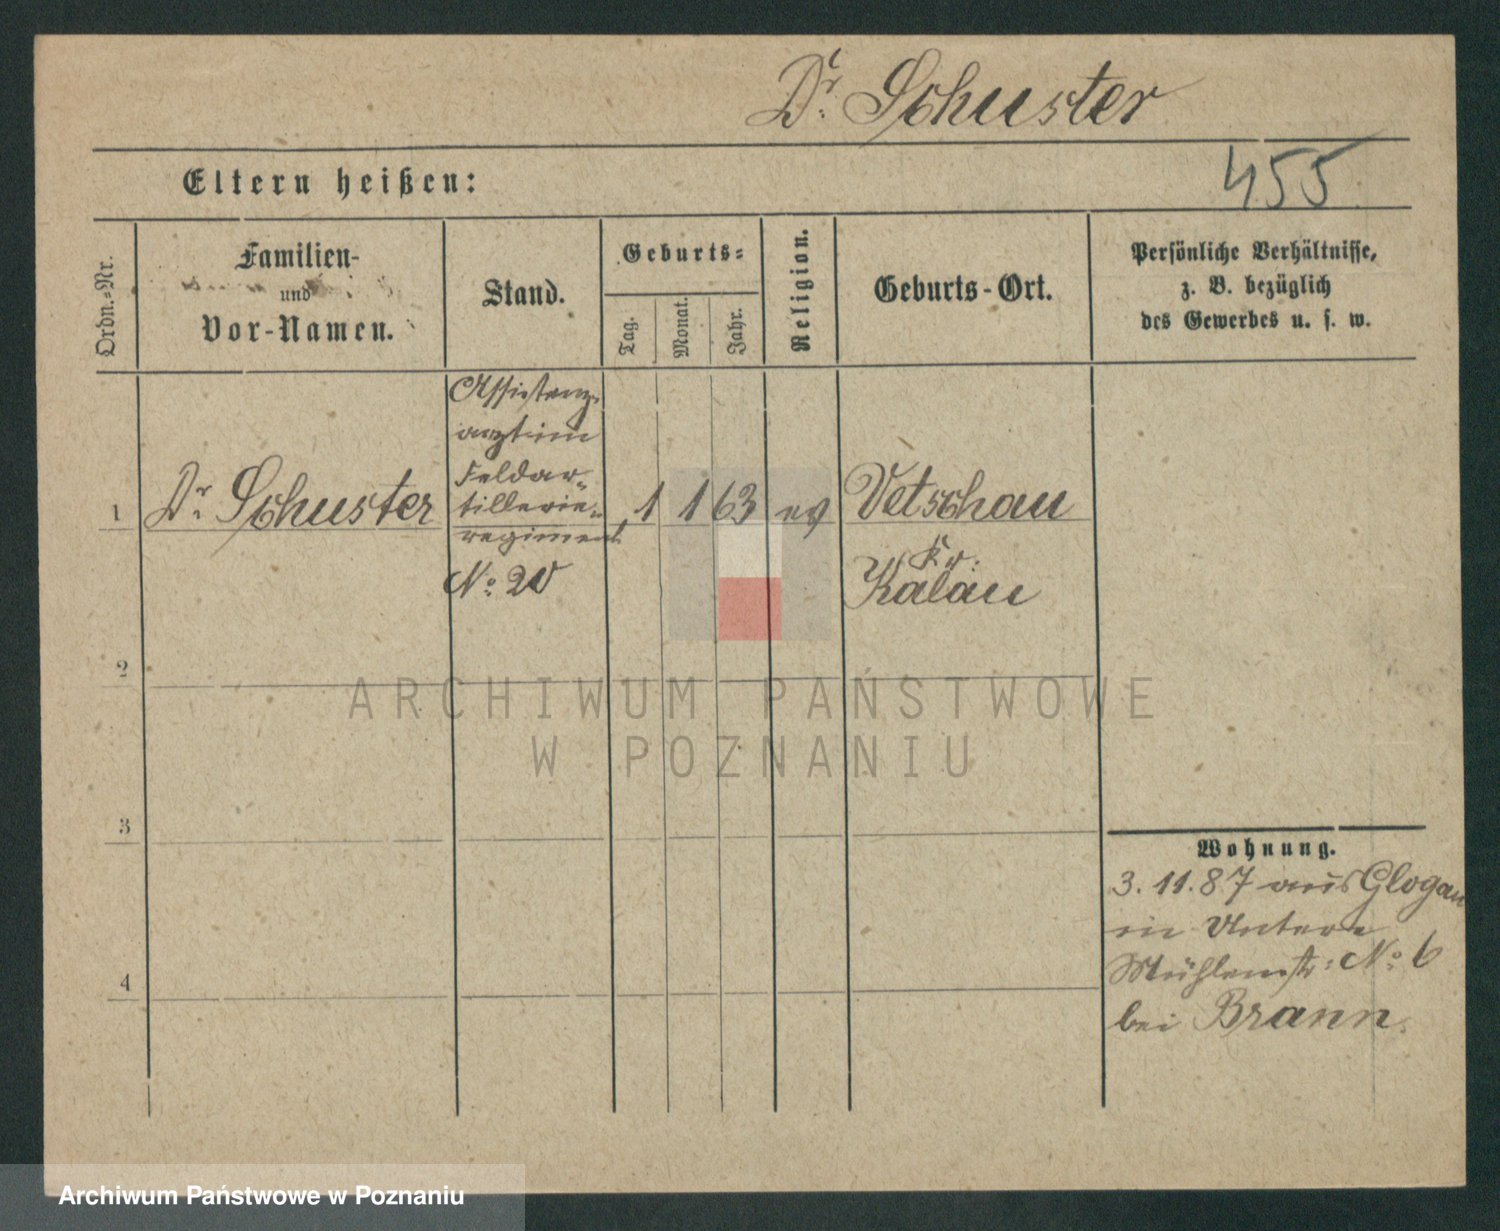 Dr. Schuster
Eltern heißen:
455
Ordn.=Nr.
Familien-
und
Vor-Namen.
Stand.
Geburts=
Tag.
Monat.
Jahr.
Religion.
Geburts-Ort.
Persönliche Verhältnisse,
z. B. bezüglich
des Gewerbes u. s. w.
1
Dr. Schuster
Assistenz-
arzt im
Feldar-
tillerie-
regiment
No. 20
1
1
63
ev
Vetschau
Kr.
Kalau
2
3
4
Wohnung.
3. 11. 87 aus Glogau
in Untere
Mühlenstr: No. 6
bei Brann.
ARCHIWUM PAŃSTWOWE
W POZNANIU
Archiwum Państwowe w Poznaniu